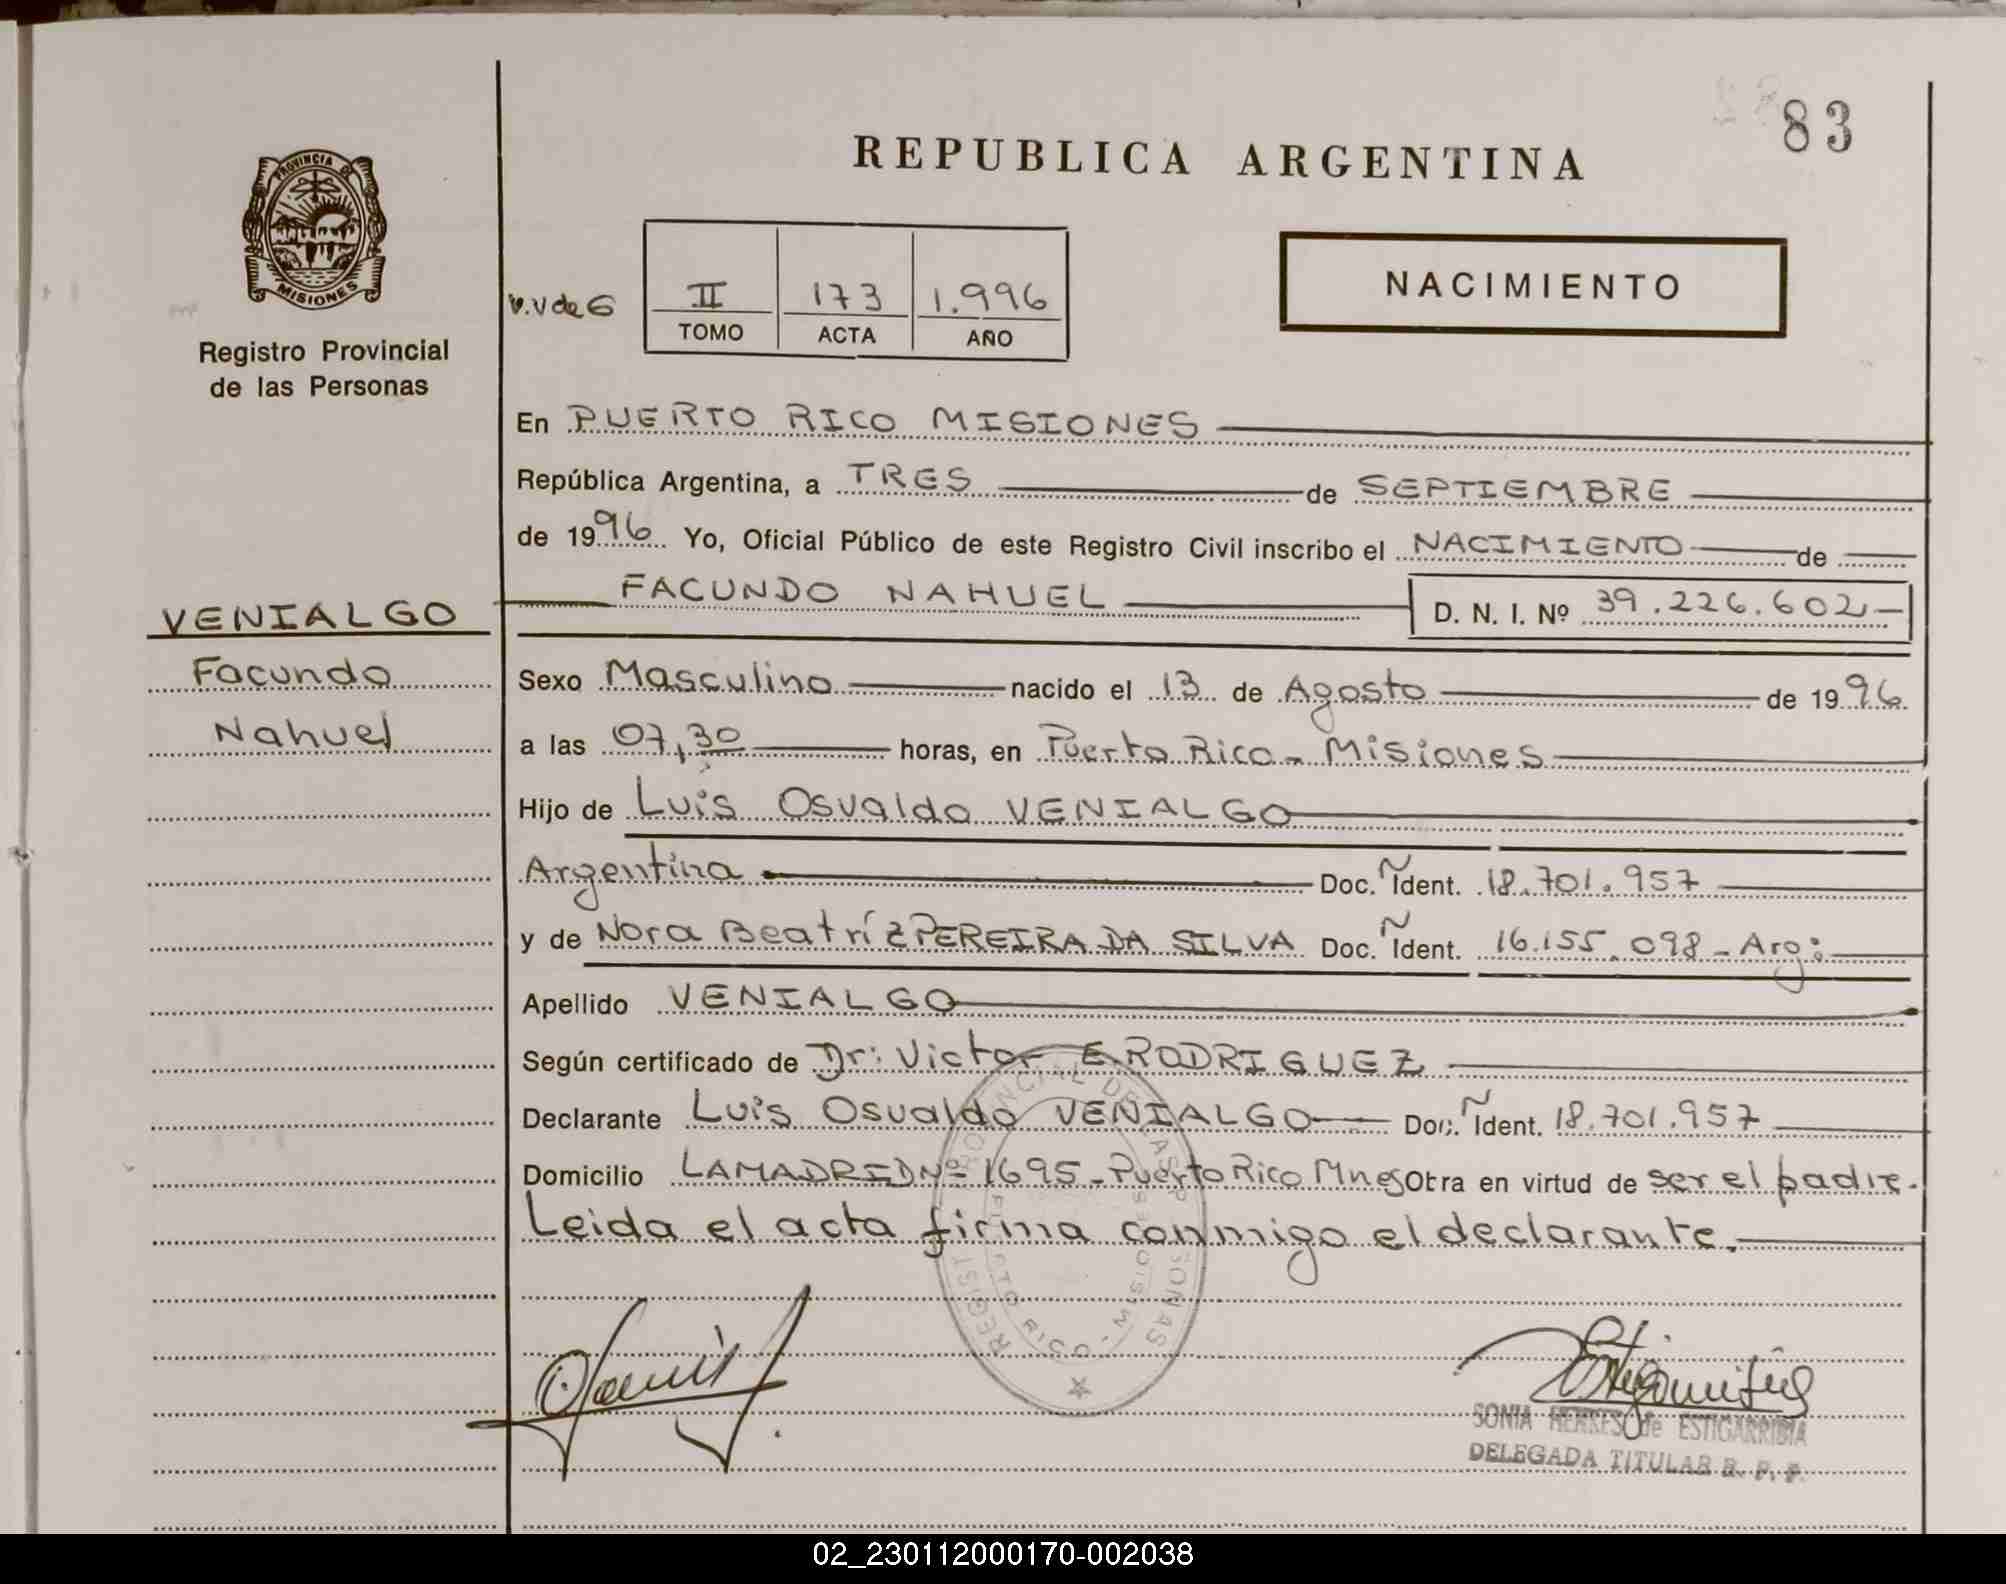 83
REPUBLICA ARGENTINA
PROVINCIA DE
MISIONES
Registro Provincial
de las Personas
v.v de G
II 173 1.996
TOMO ACTA AÑO
NACIMIENTO
En PUERTO RICO MISIONES
República Argentina, a TRES de SEPTIEMBRE
de 1996 Yo, Oficial Público de este Registro Civil inscribo el NACIMIENTO de
FACUNDO NAHUEL D. N. I. Nº 39.226.602
VENIALGO
Facundo
Nahuel
Sexo Masculino nacido el 13 de Agosto de 1996.
a las 07,30 horas, en Puerto Rico - Misiones
Hijo de Luis Osvaldo VENIALGO
Argentina Doc. Ñ Ident. 18.701.957
y de Nora Beatríz PEREIRA DA SILVA Doc. Ñ Ident. 16.155.098 - Arg:
Apellido VENIALGO
Según certificado de Dr: Victor E. RODRIGUEZ
Declarante Luis Osvaldo VENIALGO Doc. Ñ Ident. 18.701.957
Domicilio LAMADRID Nº 1695 - Puerto Rico Mnes Obra en virtud de ser el padre.
Leida el acta firma conmigo el declarante.
REGISTRO PROVINCIAL DE LAS PERSONAS
PUERTO RICO - MISIONES
SONIA de ESTIGARRIBIA
DELEGADA TITULAR R. P. P.
02_230112000170-002038